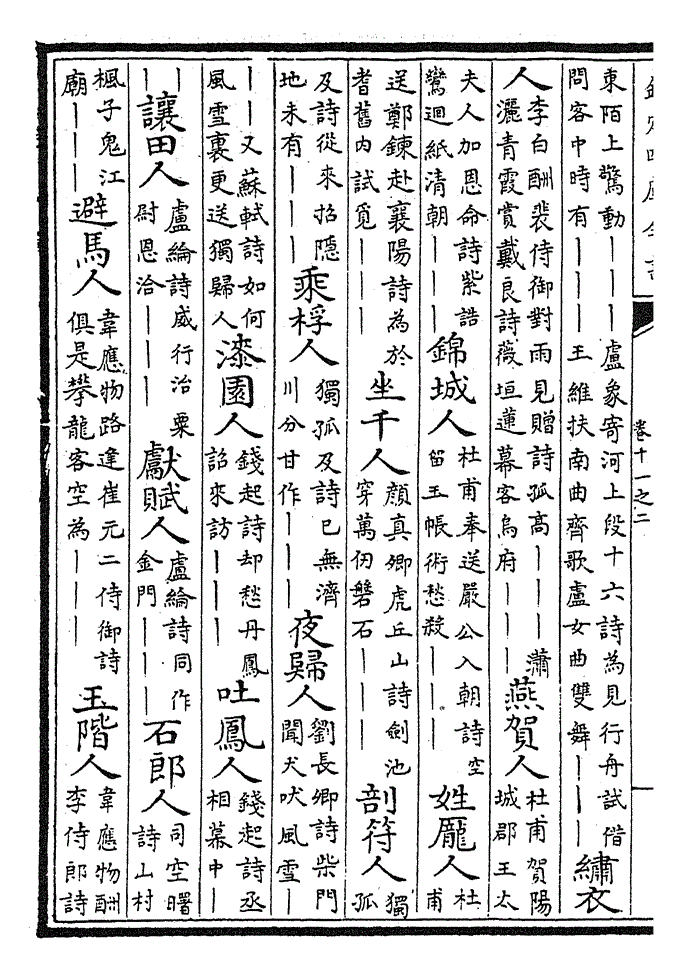 欽定四庫全書 卷十一之二
東陌上驚動｜｜｜盧象寄河上段十六詩為見行舟試借問客中時有｜｜｜王維扶南曲齊歌盧女曲雙舞｜｜｜繡衣
人李白酬裴侍御對雨見贈詩孤高｜｜｜瀟灑青霞賞戴良詩薇垣蓮幕客烏府｜｜｜燕賀人杜甫賀陽城郡王太
夫人加恩命詩紫誥鸞迴紙清朝｜｜｜錦城人杜甫奉送嚴公入朝詩空留玉帳術愁殺｜｜｜姓龐人杜甫
送鄭鍊赴襄陽詩為於耆舊内試覓｜｜｜坐千人顔真卿虎丘山詩劍池穿萬仞磐石｜｜｜剖符人獨孤
及詩從來招隱地未有｜｜｜乘桴人獨孤及詩已無濟川分甘作｜｜｜夜歸人劉長卿詩柴門聞犬吠風雪｜
｜｜又蘇軾詩如何風雪裏更送獨歸人漆園人錢起詩却愁丹鳳詔來訪｜｜｜吐鳳人錢起詩丞相幕中｜
｜｜讓田人盧綸詩威行治粟尉恩洽｜｜｜獻賦人盧綸詩同作金門｜｜｜石郎人司空曙詩山村
楓子鬼江廟｜｜｜避馬人韋應物路逢崔元二侍御詩俱是攀龍客空為｜｜｜玉階人韋應物酬李侍郎詩